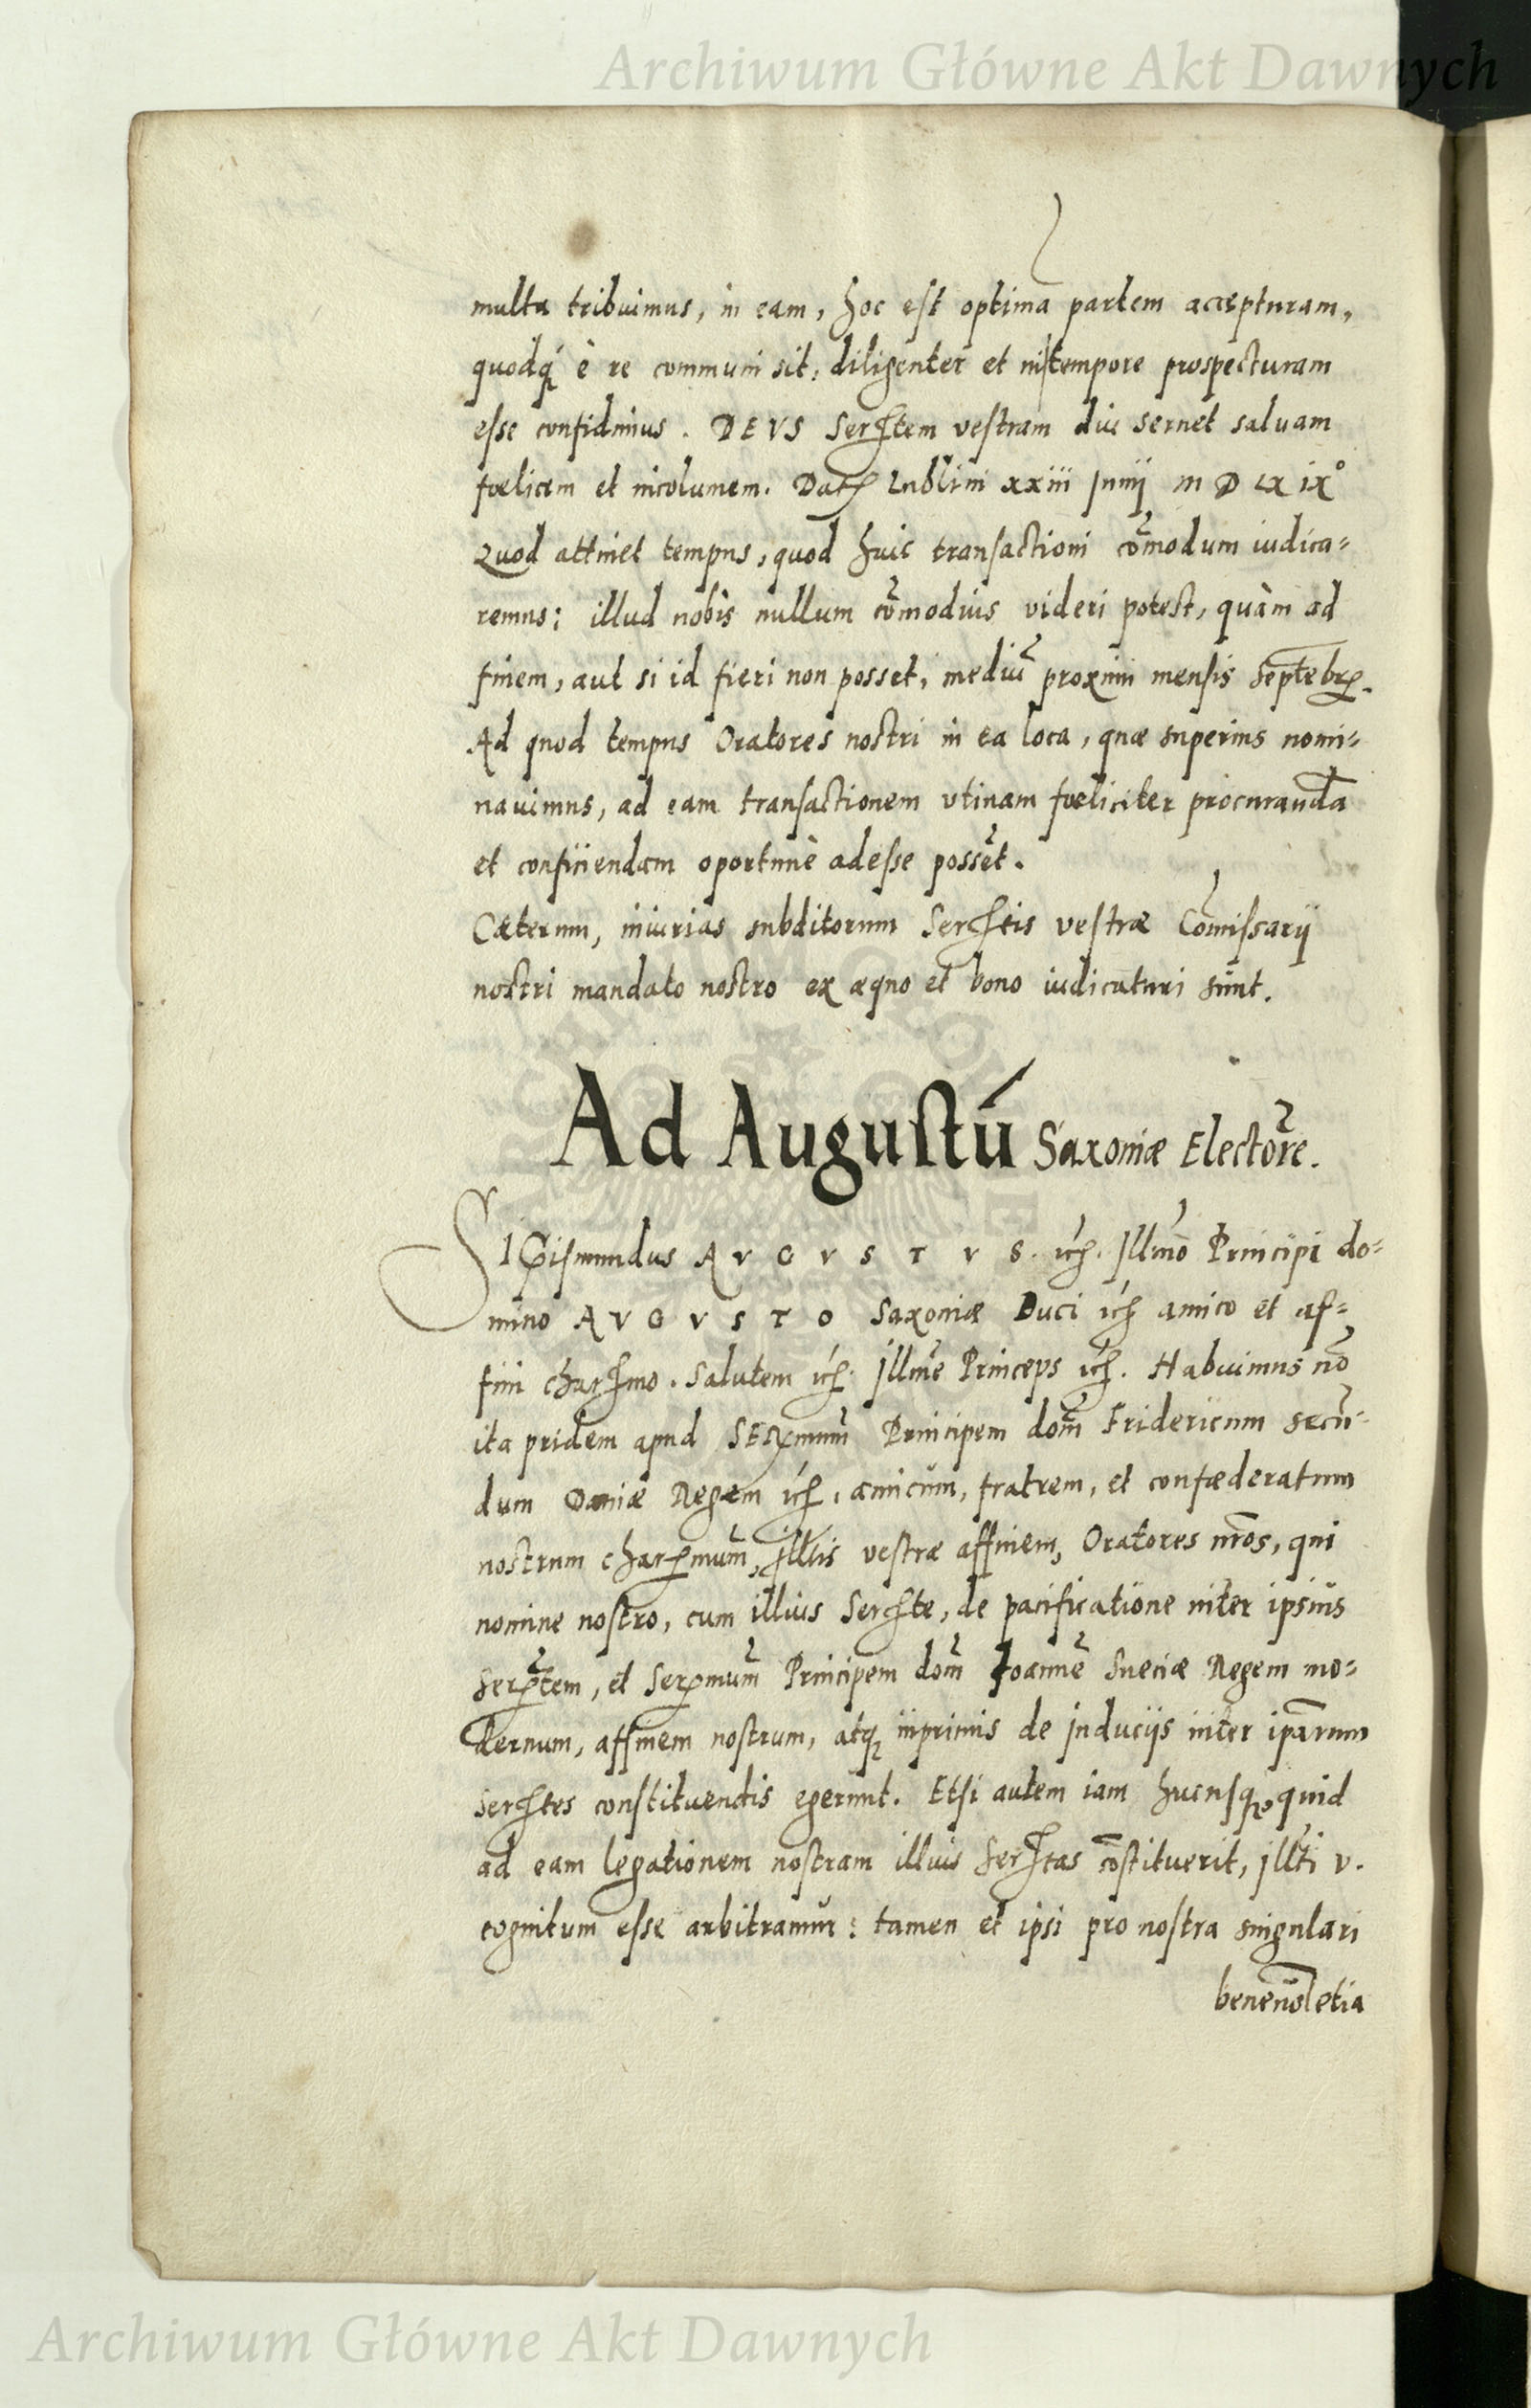 Archiwum Główne Akt Dawnych
multa tribuimus, in eam, hoc est optimã partem accepturam,
quodq́ è re communi sit, diligenter et in tempore prospecturam
esse confidimus. DEVS Serᵗtem vestram diu seruet saluam
fœlicem et incolumem. Datꝭ Lublini xxiii Junij M D LX ix°
Quod attinet tempus, quod huic transactioni cõmodum iudica=
remus; illud nobis nullum cõmodius videri potest, quàm ad
finem, aut si id fieri non posset, mediũ proximi mensis Septẽbrꝭ.
Ad quod tempus Oratores nostri in ea loca, quæ superius nomi=
nauimus, ad eam transactionem vtinam fœliciter procurandã
et conficiendam oportunè adesse possẽt.
Cæterum, iniurias subditorum Serᵗtis vestræ Cõmissarij
nostri mandato nostro ex æquo et bono iudicaturi sunt.
Ad Augustũ Saxoniæ Electorẽ.
SIGismundus AVGVSTVS. ꝛcꝭ. Jllmõ Principi do=
mino AVGVSTO Saxoniæ Duci ꝛcꝭ amico et af=
fini charᵐsmo. Salutem ꝛcꝭ. Jllmẽ Princeps ꝛcꝭ. Habuimus nõ
ita pridem apud SERꝭmum̃ Principem dom̃ Fridericum secũ=
dum Daniæ Regem ꝛcꝭ, amicum, fratrem, et confœderatum
nostrum charꝭmum̃, Jlltis vestræ affinem, Oratores nr̃os, qui
nomine nostro, cum illius Serᵗte, de pacificatione inter ipsius
Serꝭtẽm, et Serꝭmum̃ Principem dom̃ Joannẽ Sueciæ Regem mo=
dernum, affinem nostrum, atqꝫ inprimis de Jnducijs inter ipãrum
Serᵗtes constituendis egerunt. Etsi autem iam hucusqꝫ, quid
ad eam legationem nostram illius Serᵗtas cõstituerit, Jllti v.
cognitum esse arbitramur: tamen et ipsi pro nostra singulari
beneuolẽtia
Archiwum Główne Akt Dawnych